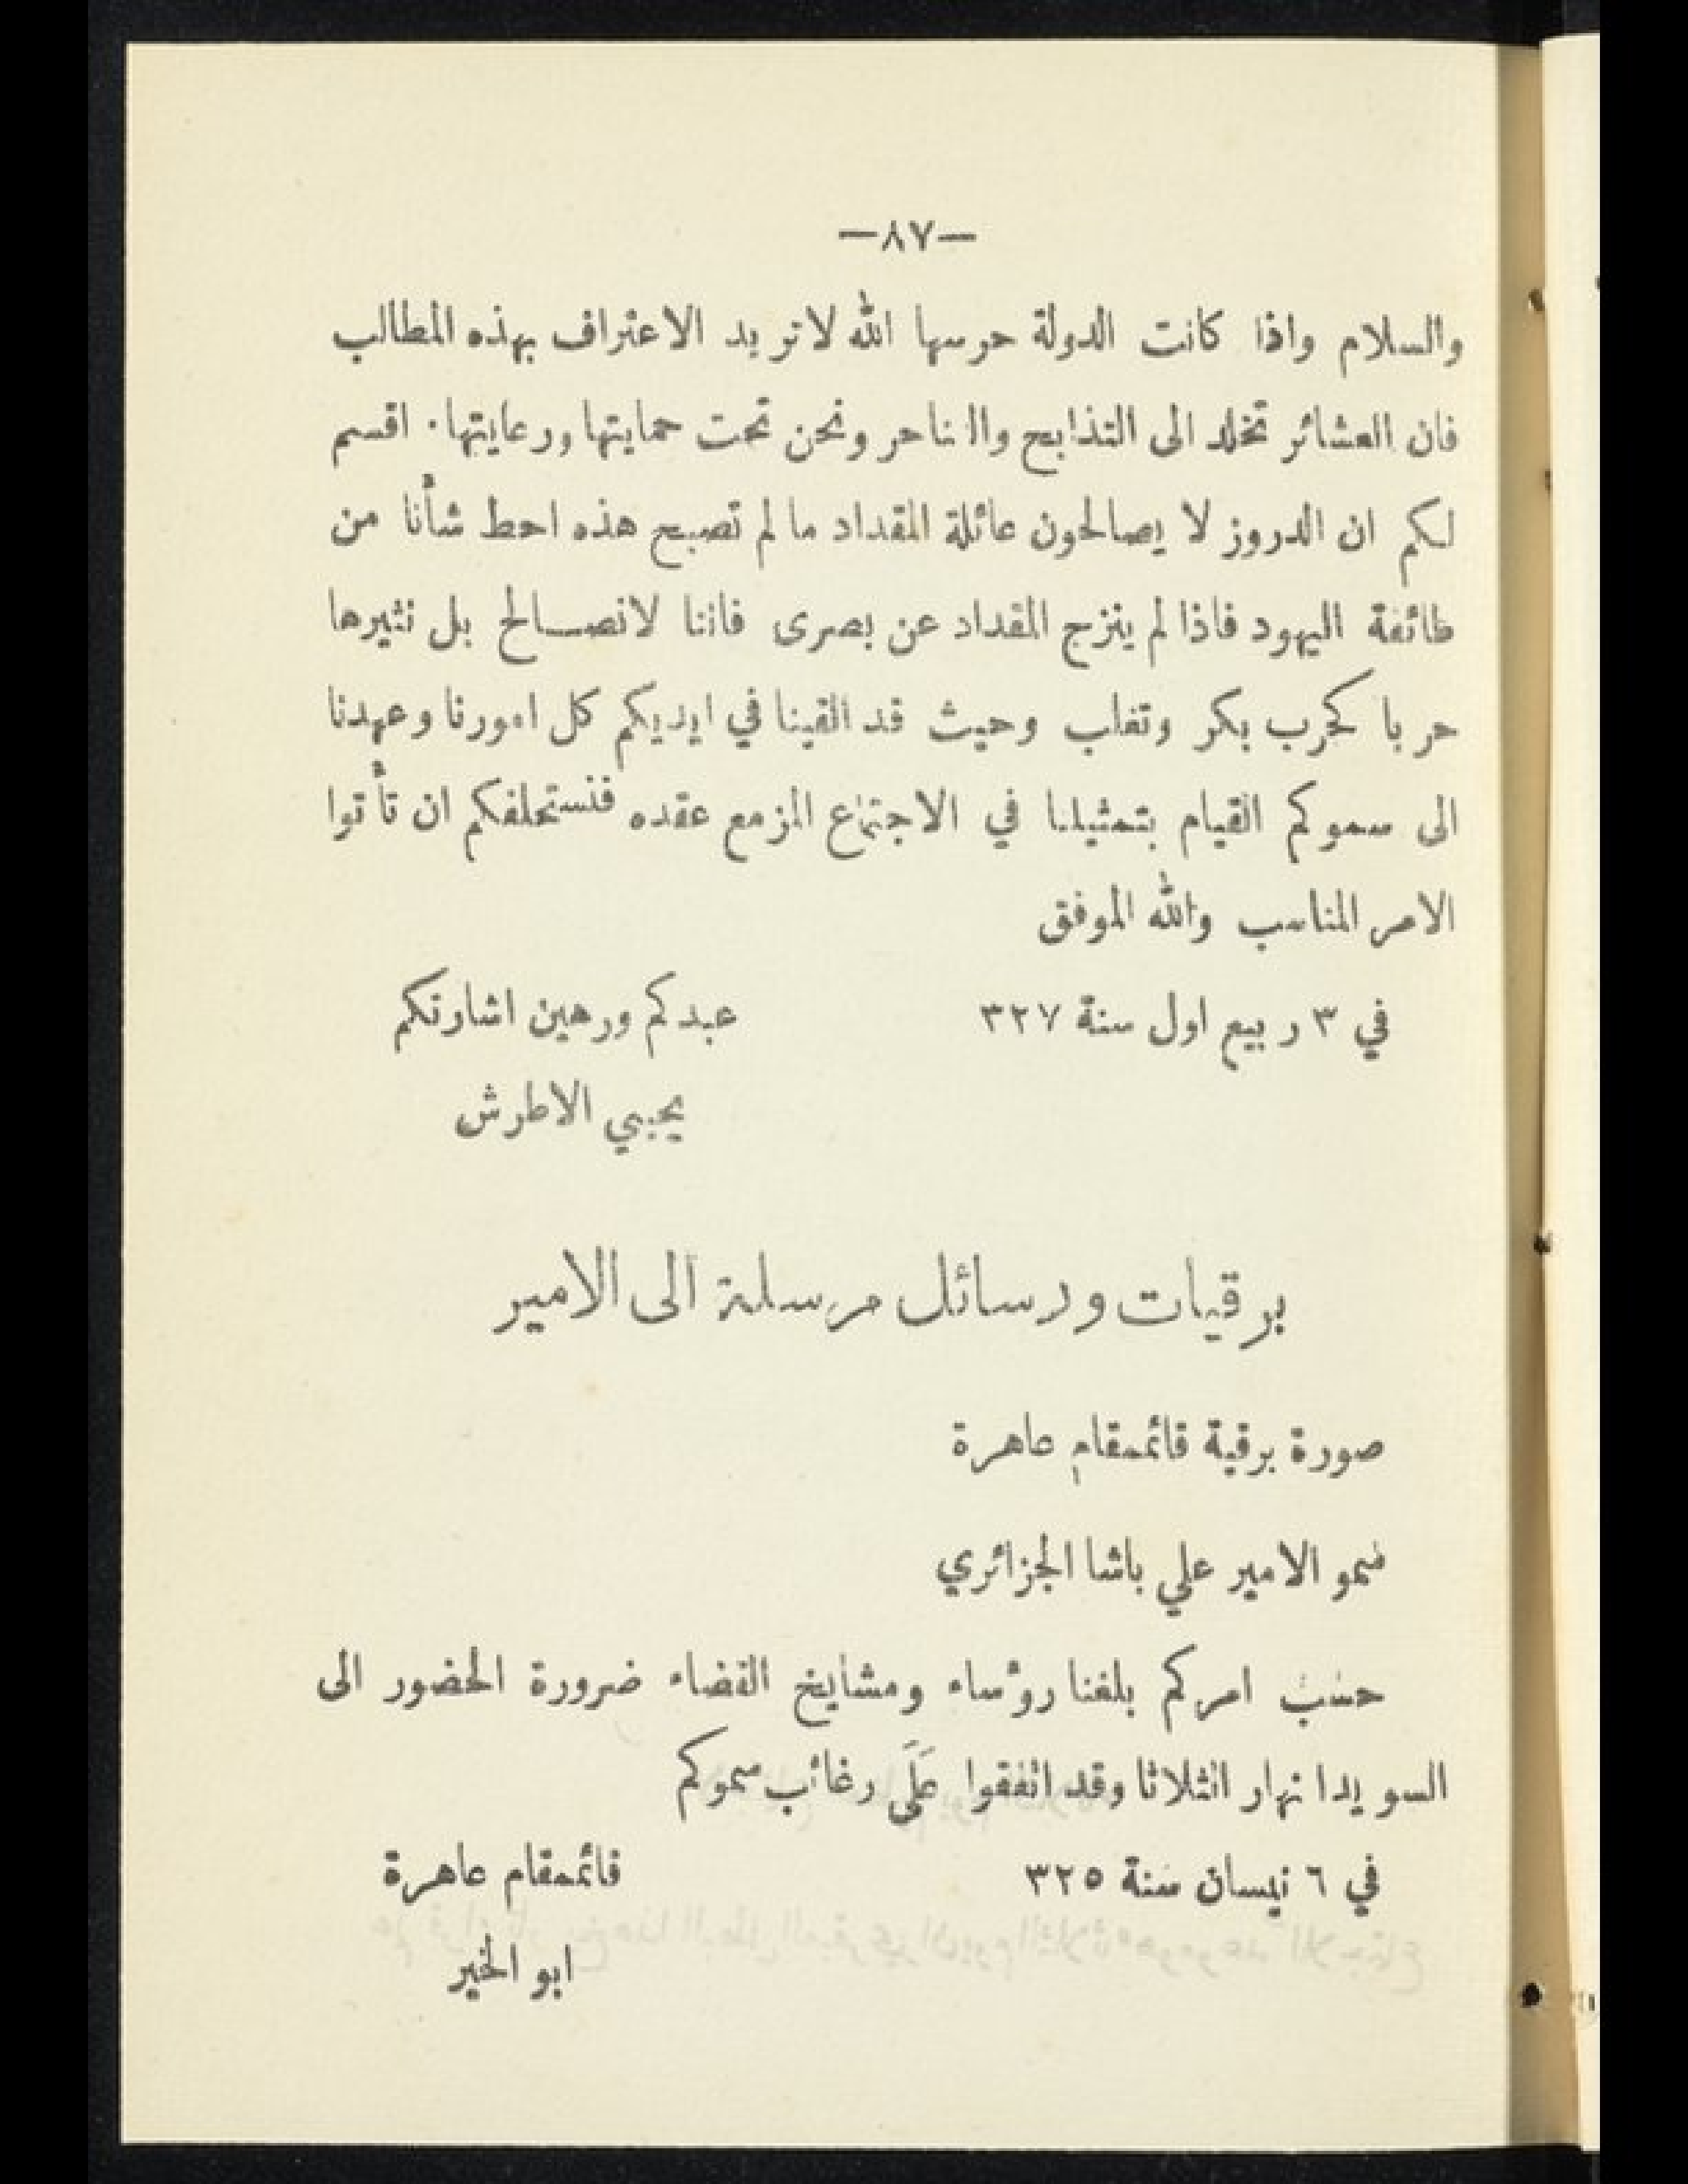 —٨٧—
والسلام واذا كانت الدولة حرسها الله لاتريد الاعتراف بهذه المطالب
فان العشائر تخلد الى التذابح والتناحر ونحن تحت حمايتها ورعايتها. اقسم
لكم ان الدروز لا يصالحون عائلة المقداد ما لم تصبح هذه احط شأنا من
طائفة اليهود فاذا لم ينزح المقداد عن بصرى فاننا لانصالح بل نثيرها
حربا كحرب بكر وتغلب وحيث قد القينا في ايديكم كل امورنا وعهدنا
الى سموكم القيام بتمثيلنا في الاجتماع المزمع عقده فنستحلفكم ان تأتوا
الامر المناسب والله الموفق
في ٣ ربيع اول سنة ٣٢٧ عبدكم ورهين اشارتكم
يحيي الاطرش
برقيات ورسائل مرسلة الى الامير
صورة برقية قائممقام عاهرة
سمو الامير علي باشا الجزائري
حسب امركم بلغنا رؤساء ومشايخ القضاء ضرورة الحضور الى
السويدا نهار الثلاثا وقد اتفقوا عَلَى رغائب سموكم
في ٦ نيسان سنة ٣٢٥ قائممقام عاهرة
ابو الخير